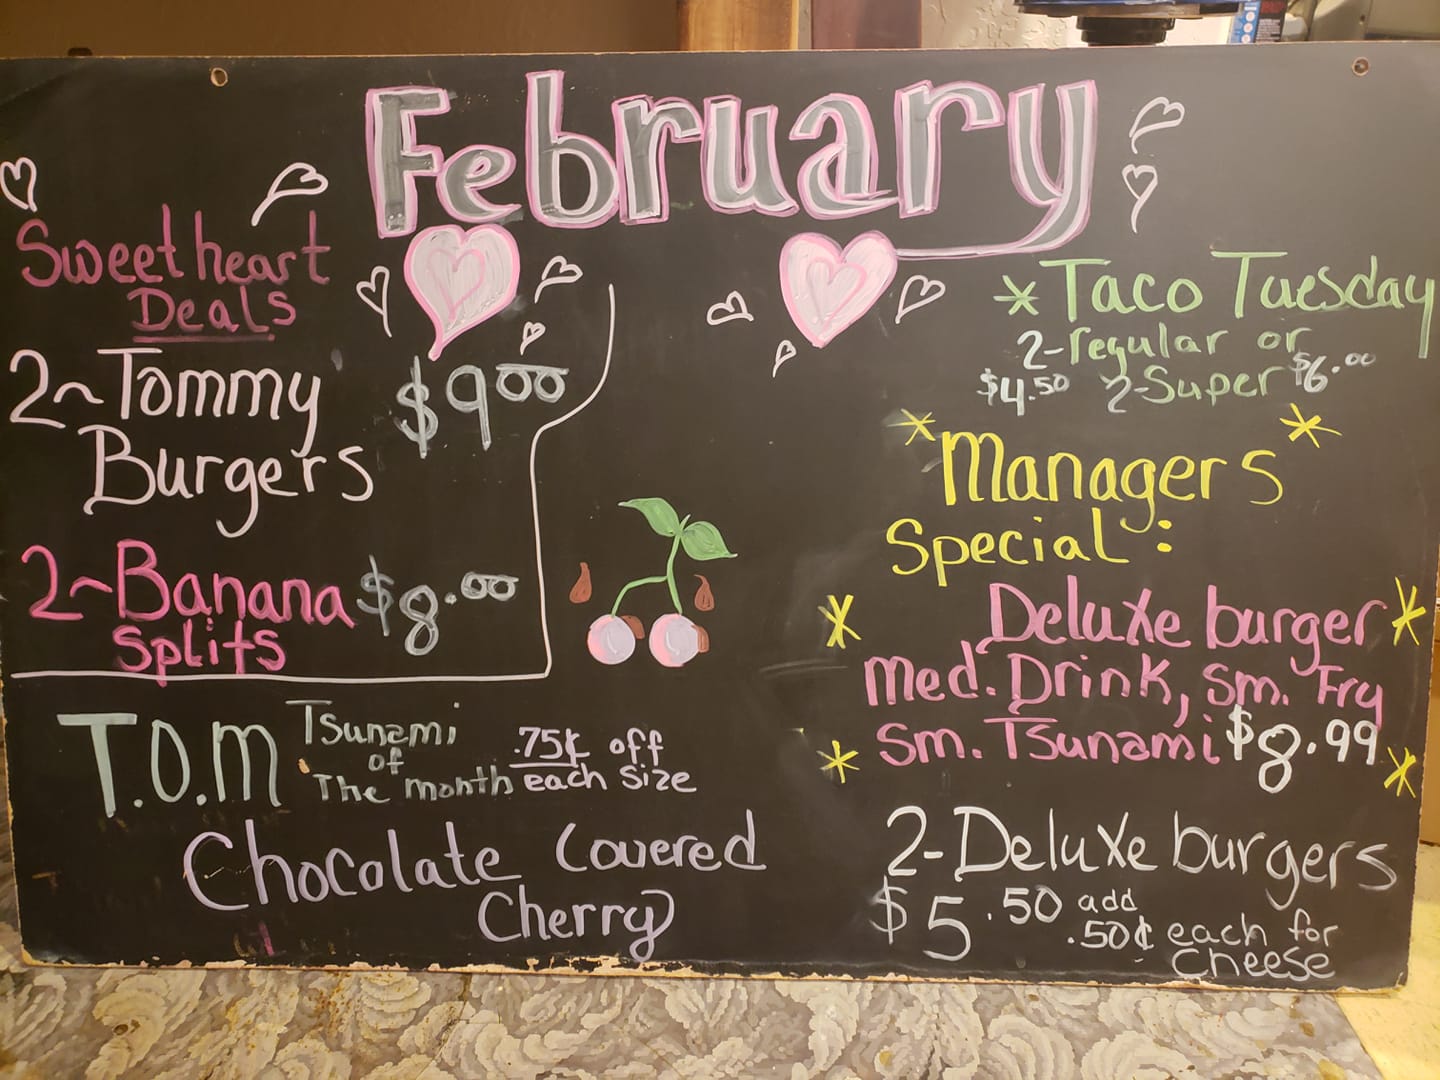 February
Sweetheart
Deals
2~Tommy $9.00
Burgers
2~Banana $8.00
Splits
T.O.M Tsunami
of
The month
.75¢ off
each size
Chocolate Covered
Cherry
*Taco Tuesday
2-regular or
$4.50 2-Super $6.00
*Managers*
Special:
*Deluxe burger*
Med. Drink, Sm. Fry
*Sm. Tsunami $8.99*
2-Deluxe burgers
$5.50 add
.50¢ each for
cheese